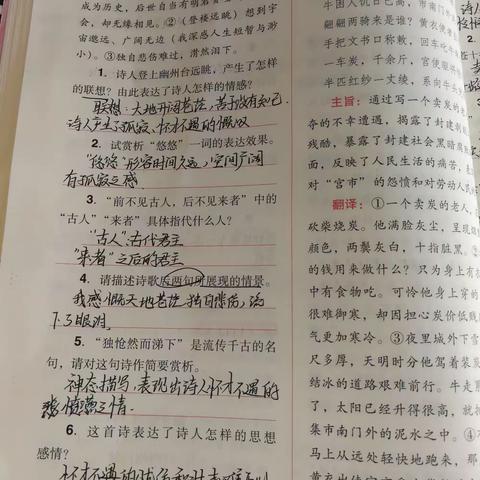 成为历史,后世自当有明君贤
会,却无缘相见。②(登楼远眺)想到宇
宙邈远、广阔无边(我深感人生短暂与渺
小)。③独自悲伤难过,潸然泪下。
1. 诗人登上幽州台远眺,产生了怎样
的联想?由此表达了诗人怎样的情感?
联想:大地开阔苍茫,苦于没有知己.
诗人产生了孤寂、怀才不遇的慨叹
2. 试赏析“悠悠”一词的表达效果。
“悠悠”形容时间久远,空间广阔
有孤寂之感.
3. “前不见古人,后不见来者”中的
“古人”“来者”具体指代什么人?
“古人”:古代君主
“来者”之后的君主
4. 请描述诗歌后两句所展现的情景。
我感慨天地苍茫,独自
下了眼泪.
5. “独怆然而涕下”是流传千古的名
句,请对这句诗作简要赏析。
神态描写,表现出诗人怀才不遇的
之情.
6. 这首诗表达了诗人怎样的思想
感情?
怀才不遇的
牛困人饥日已高,市南门
翩翩两骑来是谁?黄衣使者
手把文书口称敕,回车叱牛
一车炭,千余斤,宫使驱将
半匹红纱一丈绫,系向牛头
主旨:通过写一个卖炭的老
奇的不幸遭遇,揭露了封建制
残酷,暴露了封建社会黑暗腐
面,反映了人民生活的痛苦,
对“宫市”的怨愤和对劳动人民
翻译:①一个卖炭的老人,
砍柴烧炭。他满脸灰尘,呈现
颜色,两鬓灰白,十指脏黑。②
的钱用来做什么?只为身上有
中有食物吃。可怜他身上穿的
很难御寒,却因担心炭价低贱
气更加寒冷。③夜里城外下
尺多厚,天明时分他驾着装
结冰的道路艰难前行。牛走
了,太阳已经升得很高,就
集市南门外的泥水之中。④
马上从远处轻快地跑来,那